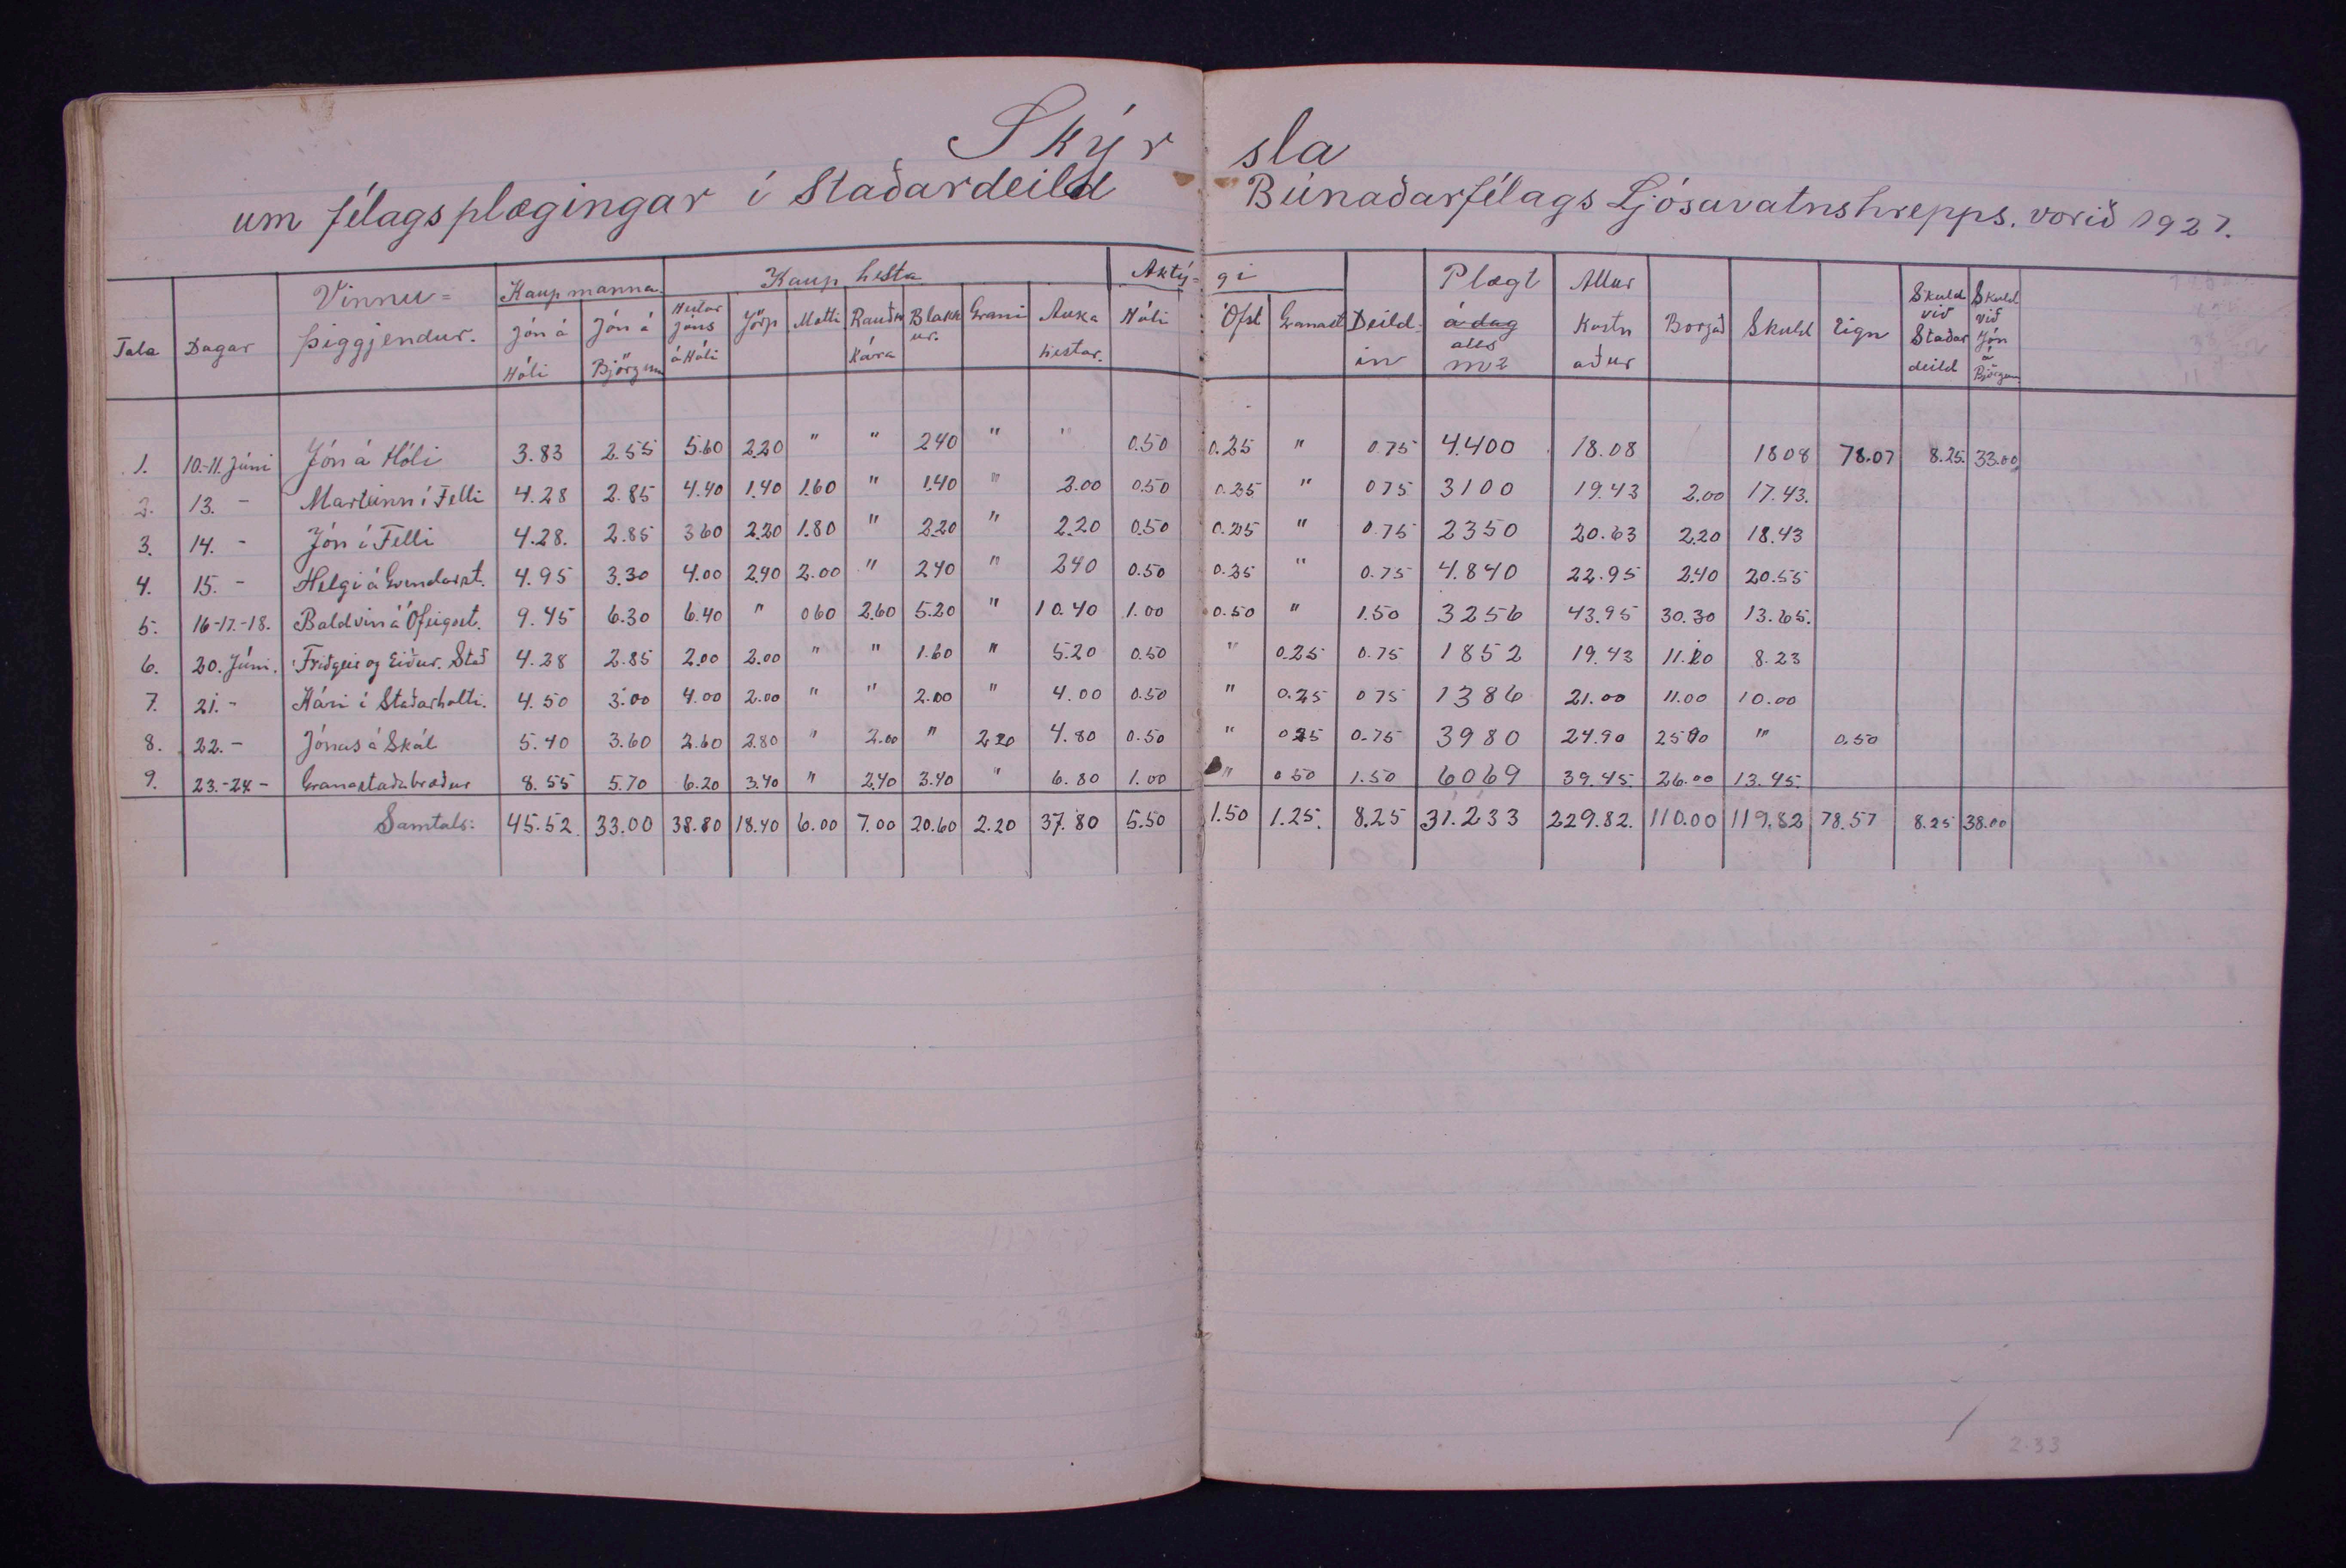 Skýrsla
um félagsplægingar í Staðardeild Búnaðarfélags Ljósavatnshrepps. vorið 1927.
Tala Dagar Vinnu= þiggjendur. Kaup manna. Kaup hesta Aktý=gi Plægt Allur Skuld Skuld
Jón á Hóli Jón á Björgum Hestar Jóns á Hóli Jörp Motti Rauðk Kára Blakkur. Grani Auka hestar. Hóli Ófst Granast Deild-in á dag alls m2 Kostnaður Borgað Skuld Eign við Staðardeild við Jón á Björgum
1. 10.-11. Júni Jón á Hóli 3.83 2.55 5.60 2.20 " " 240 " " 0.50 0.25 " 0.75 4.400 18.08 1808 78.07 8.25. 33.00
2. 13. - Marteinn í Felli 4.28 2.85 4.40 1.40 1.60 " 1.40 " 2.00 0.50 0.25 " 075 3100 19.43 2.00 17.43.
3. 14. - Jón í Felli 4.28. 2.85 360 2.20 1.80 " 2.20 " 2.20 0.50 0.25 " 0.75 2350 20.63 2.20 18.43
4. 15. - Helgi á Grendarst. 4.95 3.30 4.00 2.40 2.00 " 240 " 240 0.50 0.25 " 0.75 4.840 22.95 2.40 20.55
5. 16-17.-18. Baldvin á Ófeigsst. 9.45 6.30 6.40 " 060 2.60 5.20 " 10.40 1.00 0.50 " 1.50 3256 43.95 30.30 13.65.
6. 20. Júni. Friðgeir og Eiður. Stað 4.28 2.85 2.00 2.00 " " 1.60 " 5.20 0.50 " 0.25 0.75 1852 19.43 11.20 8.23
7. 21. - Kári í Staðarholti. 4.50 3.00 4.00 2.00 " " 2.00 " 4.00 0.50 " 0.25 075 1386 21.00 11.00 10.00
8. 22. - Jónas á Skál 5.40 3.60 2.60 2.80 " 2.00 " 2.20 4.80 0.50 " 025 0.75 3980 24.90 25.40 " 0.50
9. 23.-24 - Granastaðabræður 8.55 5.70 6.20 3.40 " 2.40 3.40 " 6.80 1.00 " 0.50 1.50 6069 39.45. 26.00 13.45.
Samtals: 45.52. 33.00 38.80 18.40 6.00 7.00 20.60 2.20 37.80 5.50 1.50 1.25. 8.25 31.233 229.82. 110.00 119.82 78.57 8.25 38.00
2.33